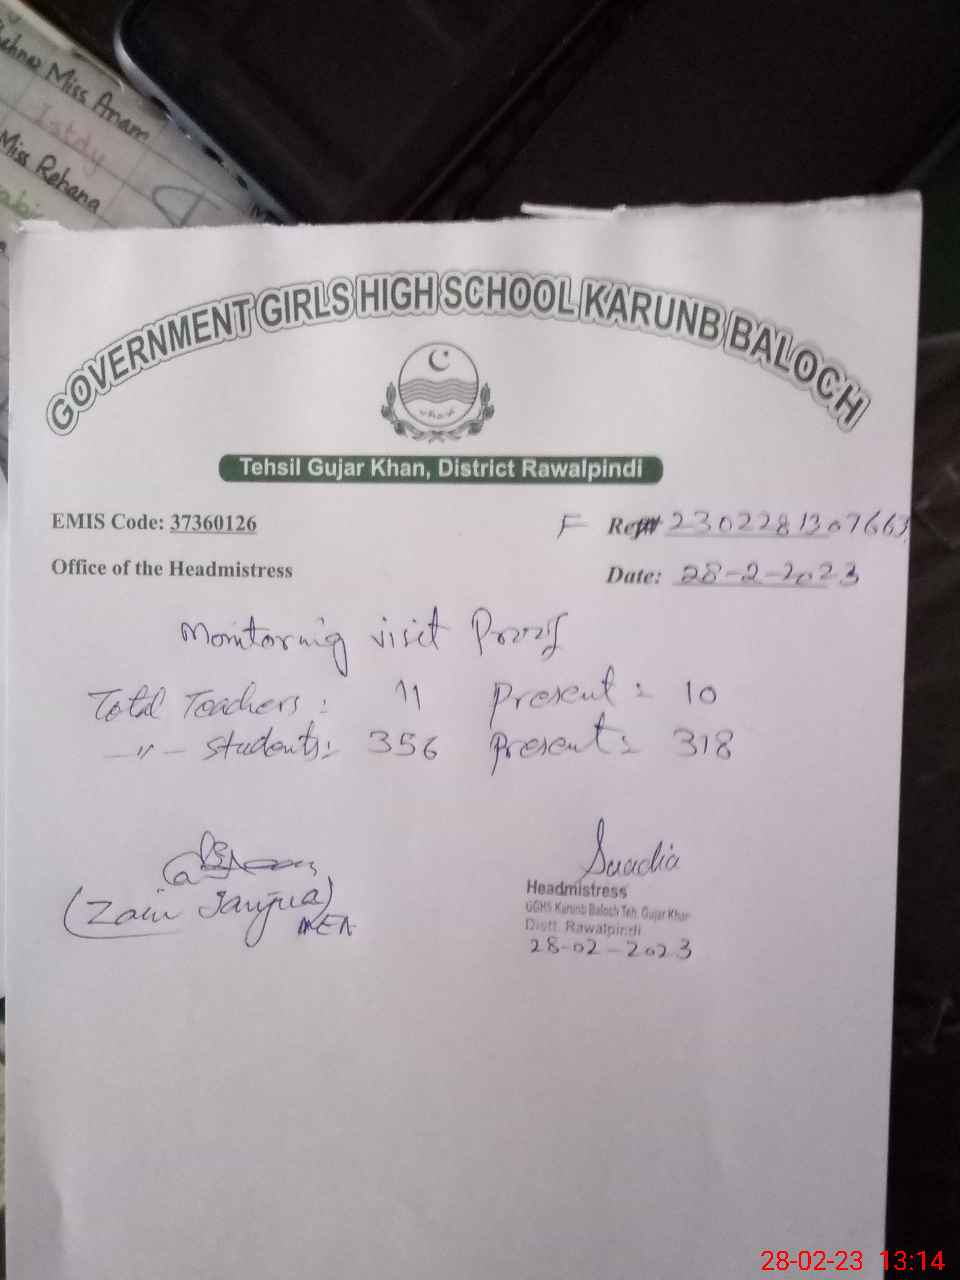 Miss Anam
Istdy
Miss Rehana
GOVERNMENT GIRLS HIGH SCHOOL KARUNB BALOCH
Tehsil Gujar Khan, District Rawalpindi
EMIS Code: 37360126 F 2302281307663
Office of the Headmistress Date: 28-2-2023
Monitoring visit Proof
Total Teachers: 11 Present: 10
-"- Students: 356 Present: 318
(Zain Janjua)
MEA
Saadia
Headmistress
GGHS Karunb Baloch Teh. Gujar Khan
Distt. Rawalpindi
28-02-2023
28-02-23 13:14